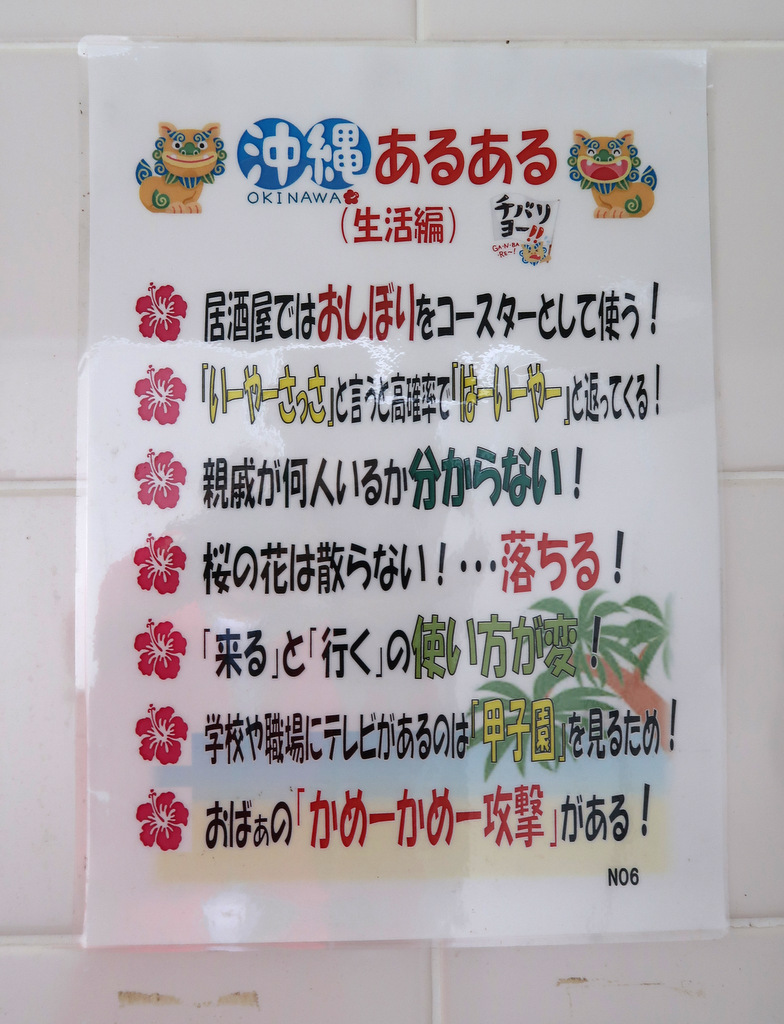 沖縄あるある
OKINAWA
(生活編)
チバリヨー!!
GA-N-BA-RE~!
居酒屋ではおしぼりをコースターとして使う!
「いーやーさっさ」と言うと高確率で「はーいーやー」と返ってくる!
親戚が何人いるか分からない!
桜の花は散らない!…落ちる!
「来る」と「行く」の使い方が変!
学校や職場にテレビがあるのは「甲子園」を見るため!
おばぁの「かめーかめー攻撃」がある!
NO6